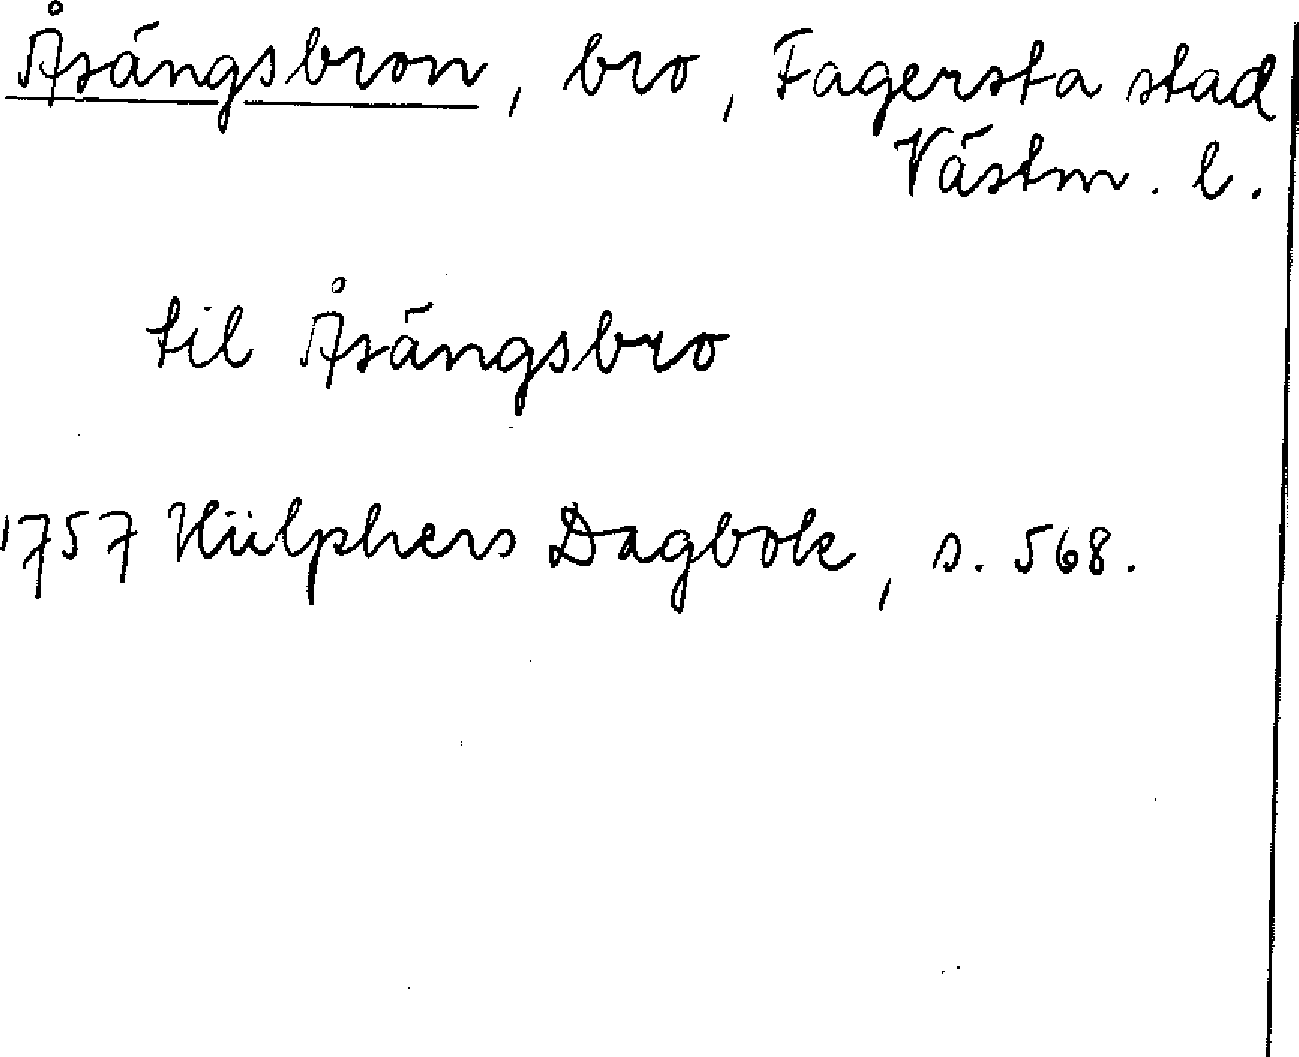 Åsängsbron, bro, Fagersta stad
Västm. l.
til Åsängsbro
1757 Hülphers Dagbok, s. 568.